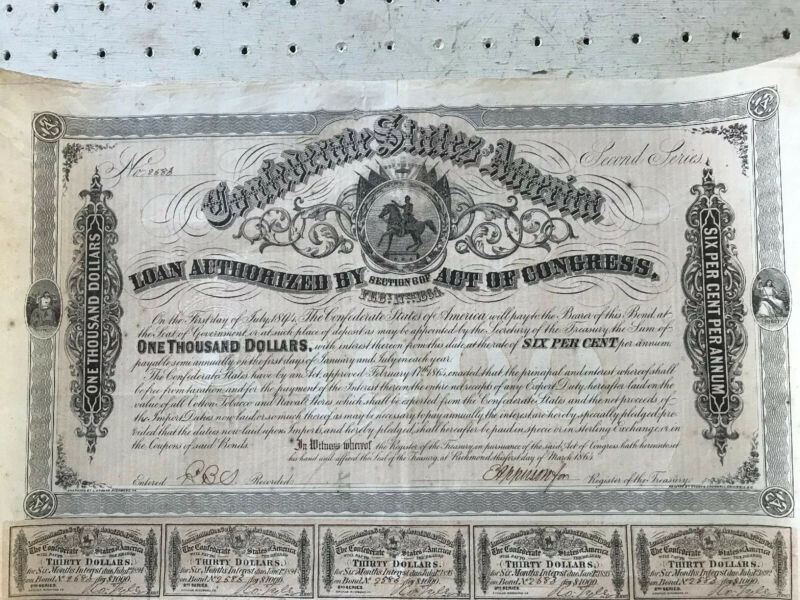 No 2683
Second Series.
Confederate States of America
LOAN AUTHORIZED BY SECTION 6 OF ACT OF CONGRESS,
FEB: 17TH 1864.
ONE THOUSAND DOLLARS
SIX PER CENT PER ANNUM
On the First day of July, 1894, The Confederate States of America will pay to the Bearer of this Bond at
the Seat of Government, or at such place of deposit as may be appointed by the Secretary of the Treasury, the Sum of
ONE THOUSAND DOLLARS, with interest thereon from this date, at the rate of SIX PER CENT per annum
payable semi annually on the first days of January and July in each year.
The Confederate States have by an Act approved February 17th 1864, enacted that the principal and interest whereof shall
be free from taxation: and for the payment of the Interest thereon, the entire net receipts of any Export Duty hereafter laid on the
value of all Cotton Tobacco and Naval Stores which shall be exported from the Confederate States and the net proceeds of
the Import Duties now laid, or so much thereof as may be necessary to pay annually the interest are hereby specially pledged: pro-
vided that the duties now laid upon Imports, and hereby pledged, shall hereafter be paid in specie or in Sterling Exchange, or in
the Coupons of said Bonds.
In Witness whereof the Register of the Treasury, in pursuance of the said Act of Congress hath hereunto set
his hand and affixed the Seal of the Treasury, at Richmond, this first day of March 1865
Entered
Recorded
Register of the Treasury.
The Confederate States of America
THIRTY DOLLARS,
for Six Months Interest due July 1st 1894
on Bond No 2683 for $1000.
The Confederate States of America
THIRTY DOLLARS,
for Six Months Interest due
on Bond No 2683 for $1000.
The Confederate States of America
THIRTY DOLLARS,
for Six Months Interest due
on Bond No 2683 for $1000.
The Confederate States of America
THIRTY DOLLARS,
for Six Months Interest due
on Bond No 2683 for $1000.
The Confederate States of America
THIRTY DOLLARS,
for Six Months Interest due
on Bond No 2683 for $1000.